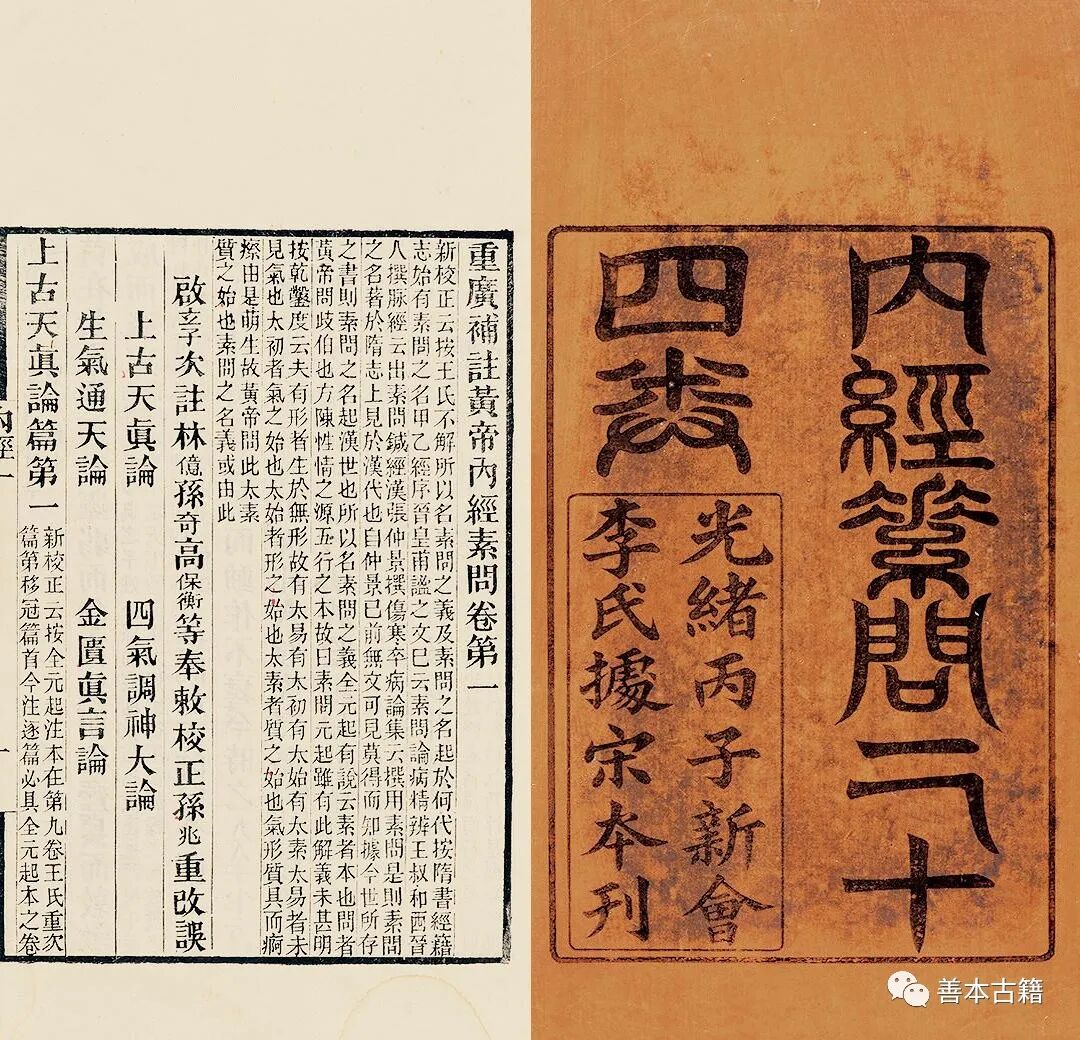 內經素問二十
四卷
光緒丙子新會
李氏據宋本刊
重廣補註黃帝內經素問卷第一
新校正云按王氏不解所以名素問之義及素問之名起於何代按隋書經籍
志始有素問之名甲乙經序晉皇甫謐之文已云素問論病精辨王叔和西晉
人撰脉經云出素問鍼經漢張仲景撰傷寒卒病論集云撰用素問是則素問
之名著於隋志上見於漢代也自仲景已前無文可見莫得而知據今世所存
之書則素問之名起漢世也所以名素問之義全元起有說云素者本也問者
黃帝問歧伯也方陳性情之源五行之本故曰素問元起雖有此解義未甚明
按乾鑿度云夫有形者生於無形故有太易有太初有太始有太素太易者未
見氣也太初者氣之始也太始者形之始也太素者質之始也氣形質具而痾
瘵由是萌生故黃帝問此太素
質之始也素問之名義或由此
啟玄子次註林億孫奇高保衡等奉敕校正孫兆重改誤
上古天眞論 四氣調神大論
生氣通天論 金匱眞言論
上古天眞論篇第一
新校正云按全元起注本在第九卷王氏重次
篇第移冠篇首今注逐篇必具全元起本之卷
內經一
一
善本古籍